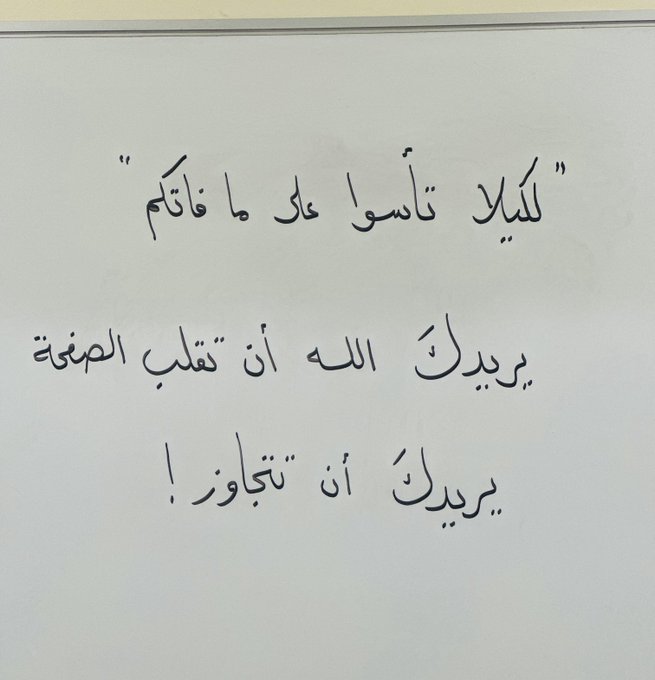 "لكيلا تأسوا على ما فاتكم"
يريدكَ الله أن تقلب الصفحة
يريدكَ أن تتجاوز!